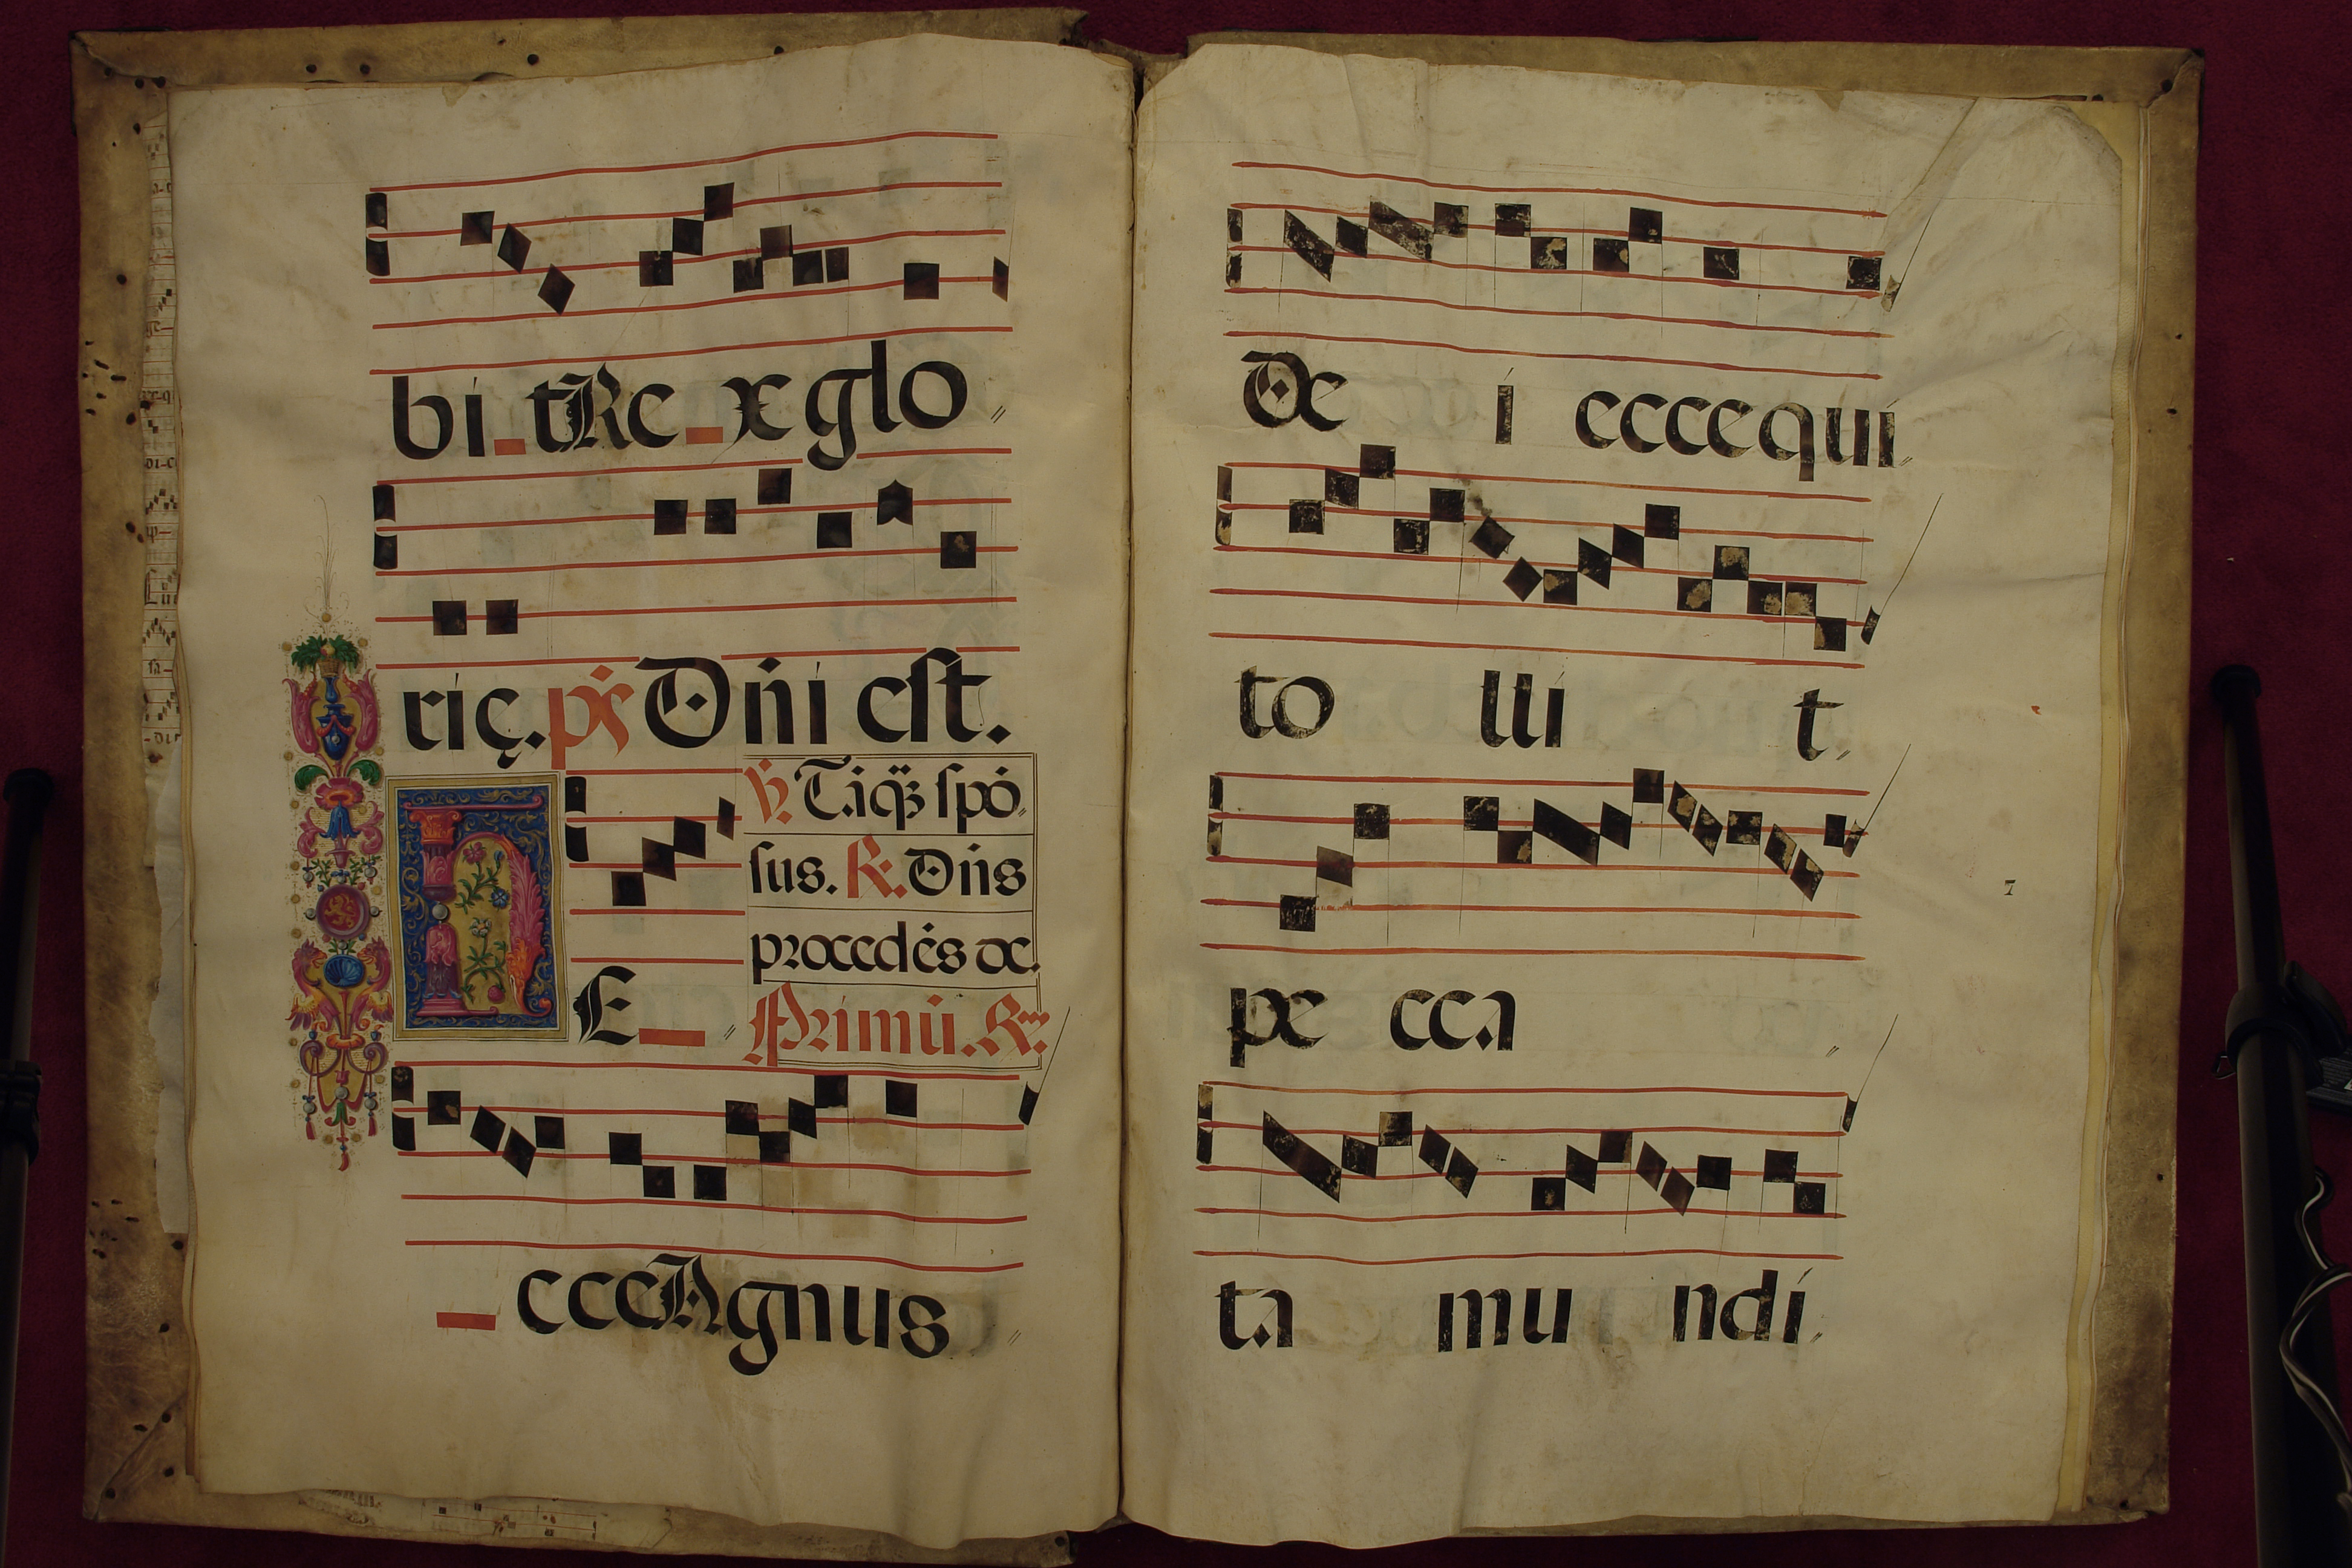 bi_tRe_x glo〃
rię. pś Dñi est.
℣. Tāq̃ȝ spō
sus. ℟. Dñs
procedēs ex.
HE_〃 Primū. ℟m̃.
_ cceAgnus〃
De i ecce qui〃
to lli t〃
pe cca〃
ta mu ndi〃
7